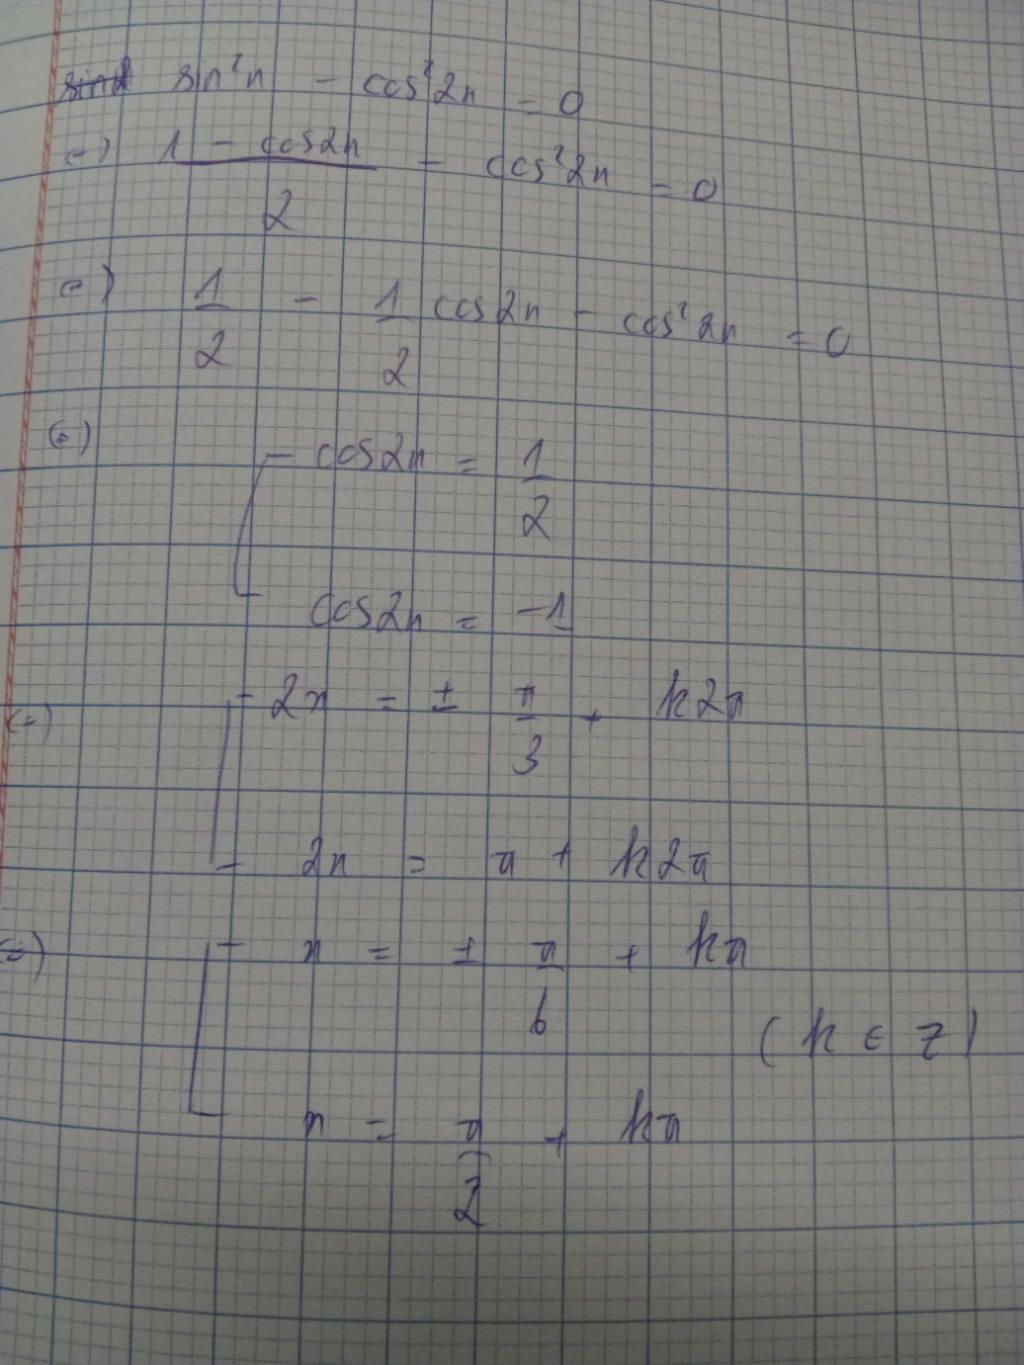 sin²x - cos²2x = 0
(=) (1 - cos2x)/2 - cos²2x = 0
(=) 1/2 - 1/2 cos2x - cos²2x = 0
(=) [ cos2x = 1/2
cos2x = -1
(=) [ 2x = ± π/3 + k2π
2x = π + k2π
(=) [ x = ± π/6 + kπ
(k ∈ Z)
x = π/2 + kπ